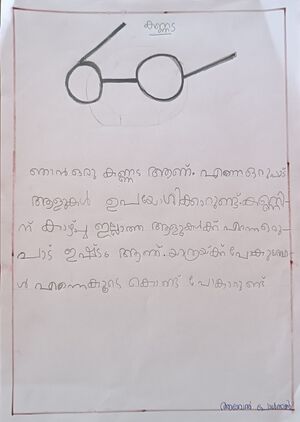 കണ്ണട
ഞാൻ ഒരു കണ്ണട ആണ്. എന്നെ ഒരുപാട്
ആളുകൾ ഉപയോഗിക്കാറുണ്ട്. കണ്ണി-
ന് കാഴ്ച്ച ഇല്ലാത്ത ആളുകൾക്ക് എന്നെ ഒരു-
പാട് ഇഷ്ടം ആണ്. യാത്രയ്ക്ക് പോകുമ്പോ
ൾ എന്നെകൂടെ കൊണ്ട് പോകാറുണ്ട്